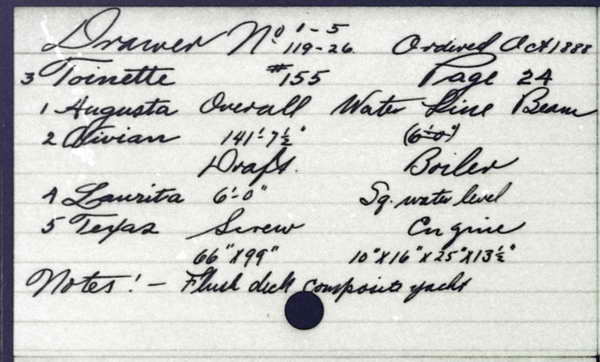 Drawer No 1-5
119-26 Ordered Oct 1888
3 Toinette #155 Page 24
1 Augusta Overall Water Line Beam
2 Vivian 141'-7½" (6'-0")
Draft. Boiler
4 Laurita 6'-0" Sq. water level
5 Texas Screw Engine
66" x 99" 10" x 16" x 25" x 13½"
Notes! - Flush deck composite yacht